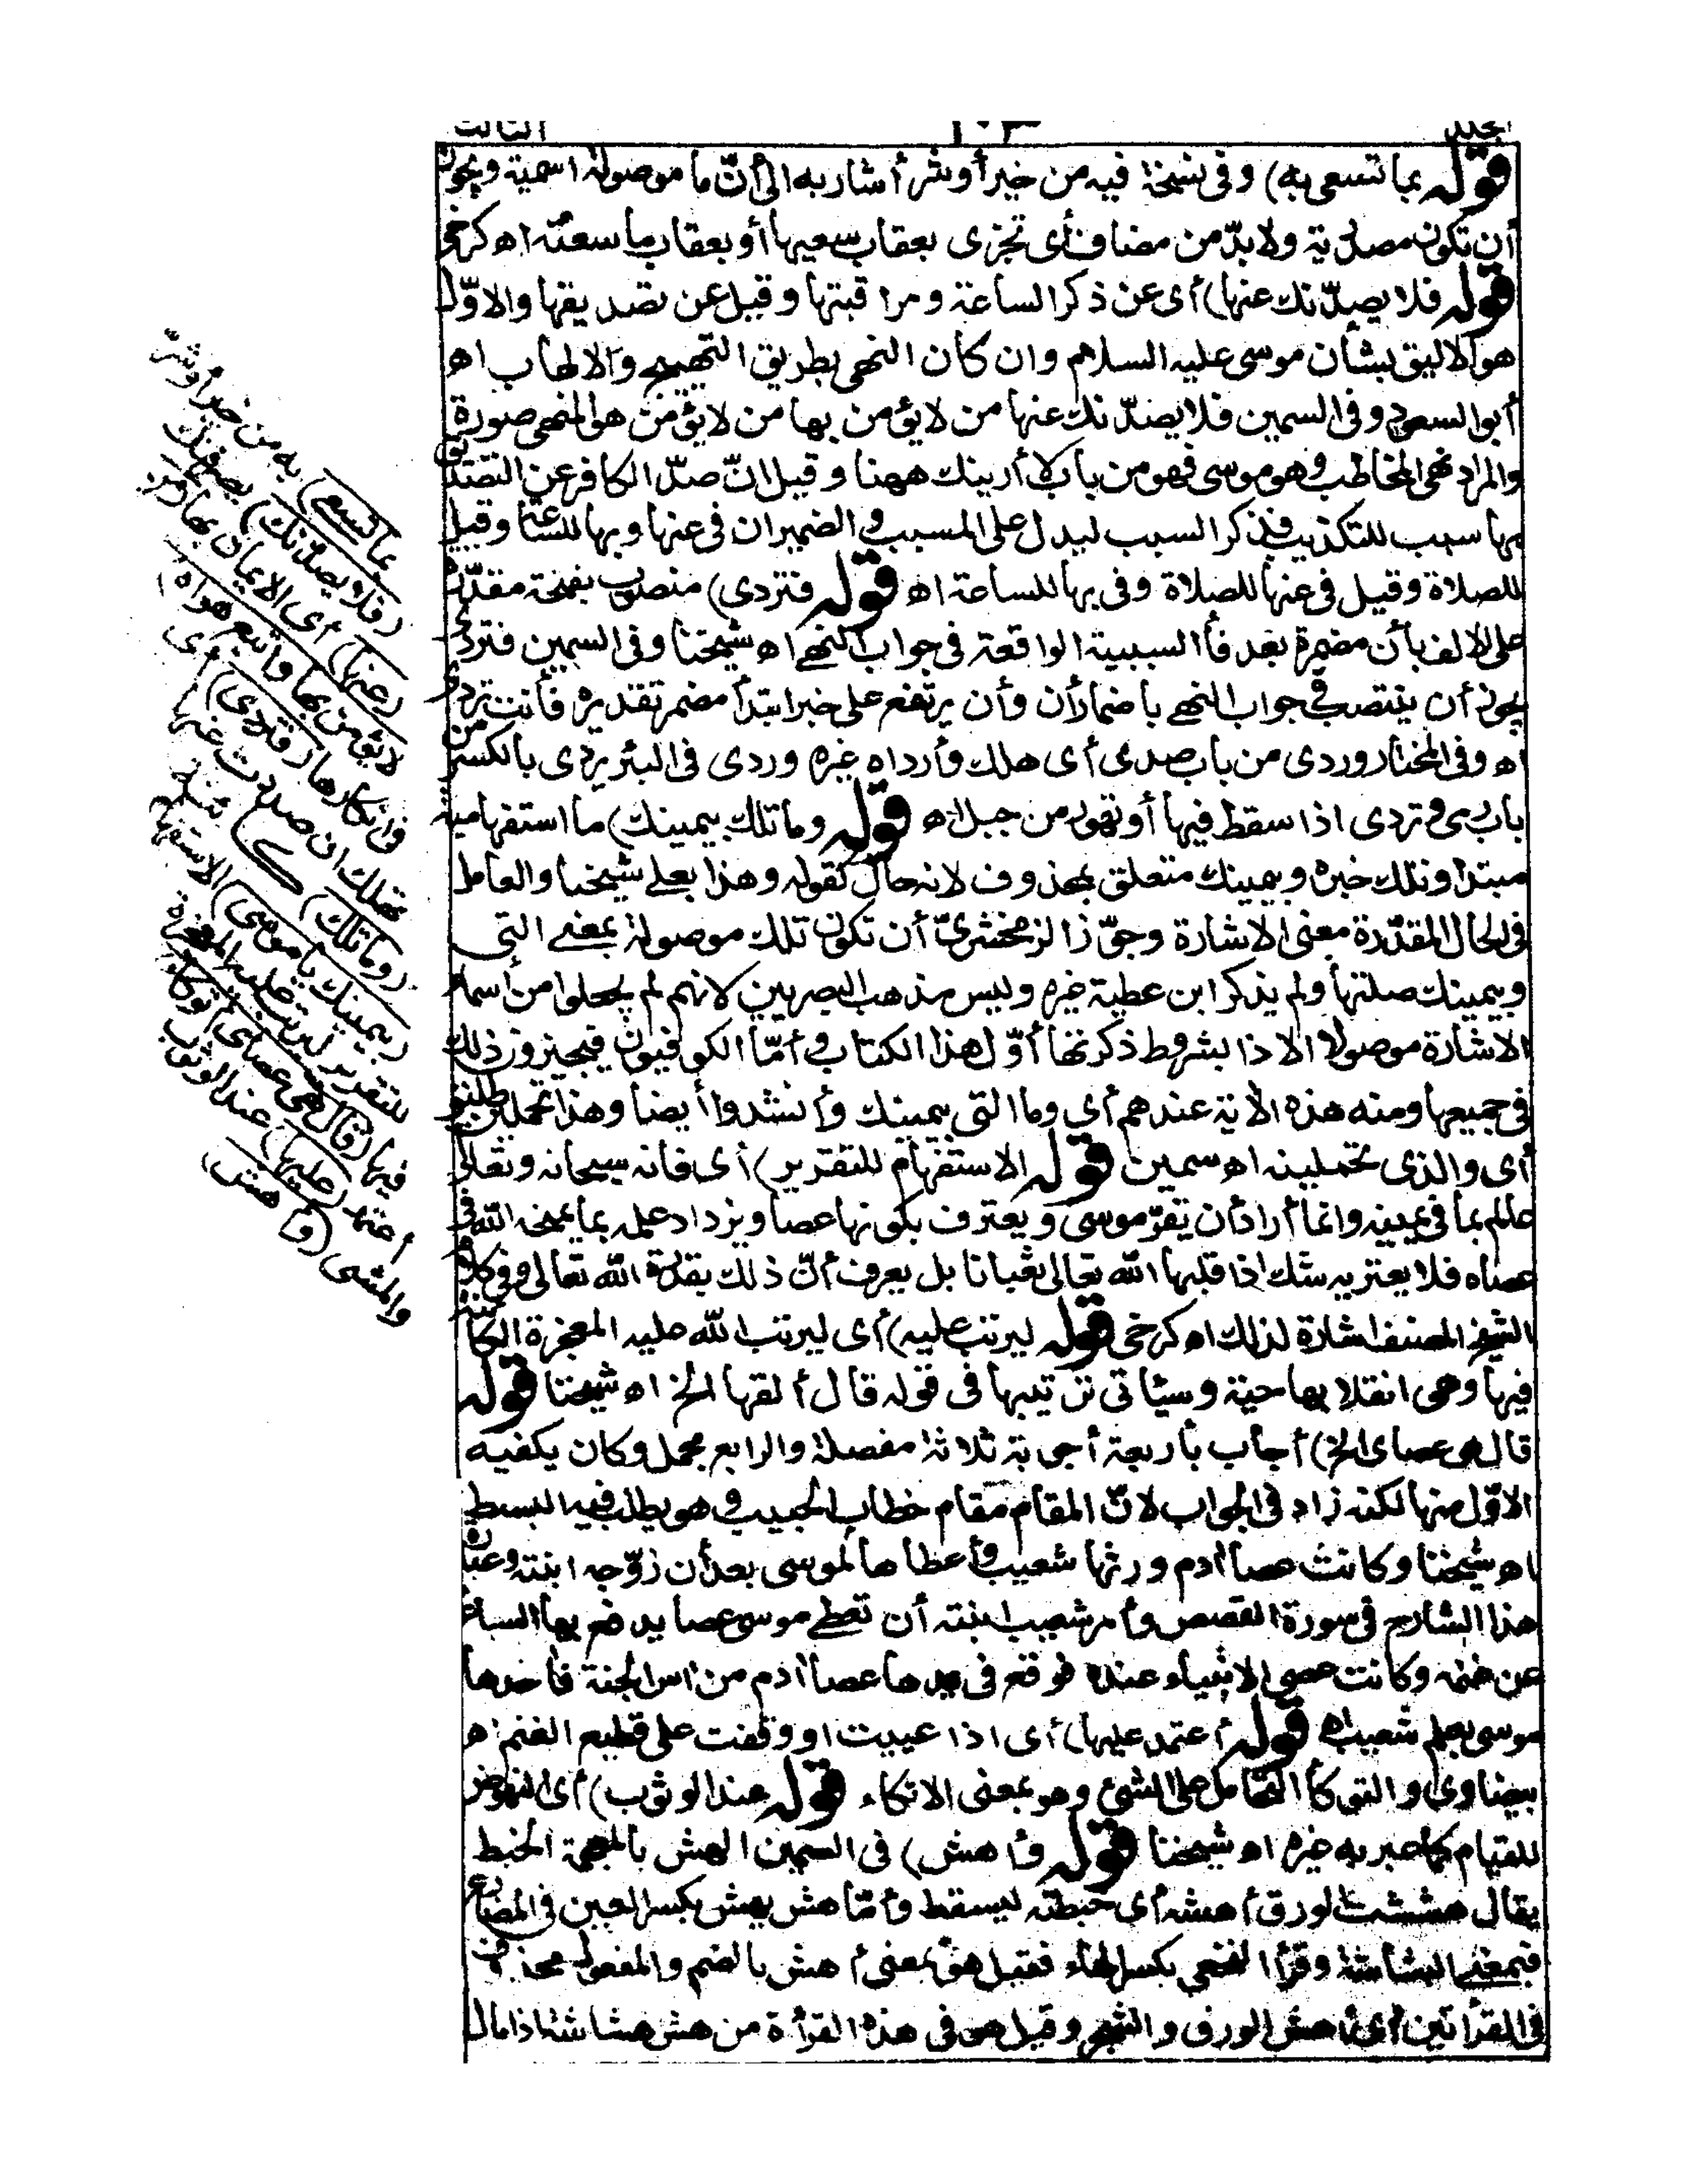 الجلد ١٠٣ الثالث
قوله بما تسعى به) وفى نسخة فيه من خير أو شر أشار به الى أنّ ما موصولة اسمية ويجوز
أن تكون مصدرية ولا بدّ من مضاف أى تجزى بعقاب سعيها أو بعقاب ما سعته اه كرخى
قوله فلا يصدّنك عنها) أى عن ذكر الساعة ومراقبتها وقيل عن تصديقها والاوّل
هو الاليق بشأن موسى عليه السلام وان كان النهى بطريق التهييج والالهاب اه
أبو السعود وفى السمين فلا يصدّنك عنها من لا يؤمن بها من لا يؤمن هو المنهى صورة
والمراد نهى المخاطب وهو موسى فهو من باب لا أرينك ههنا وقيل انّ صدّ الكافر عن التصديق
بها سبب للتكذيب فذكر السبب ليدل على المسبب والضميران فى عنها وبها للساعة وقيل
للصلاة وقيل فى عنها للصلاة وفى بها للساعة اه قوله فتردى) منصوب بفتحة مقدّرة
على الالف بأن مضمرة بعد فاء السببية الواقعة فى جواب النهى اه شيخنا وفى السمين فتردى
يجوز أن ينتصب فى جواب النهى باضمار أن وأن يرتفع على خبر ابتدأ مضمر تقديره فأنت تردى
اه وفى المختار وردى من باب صدى أى هلك وأرداه غيره وردى فى البئر يردى بالكسر من
باب رمى وتردى اذا سقط فيها أو تهور من جبل اه قوله وما تلك بيمينك) ما استفهامية
مبتدا وتلك خبره وبيمينك متعلق بمحذوف لانه حال كقوله وهذا بعلى شيخنا والعامل
فى الحال المقدّرة معنى الاشارة وجوّز الزمخشرىّ أن تكون تلك موصولة بمعنى التى
وبيمينك صلتها ولم يذكر ابن عطية غيره وليس مذهب البصريين لانهم لم يجعلوا من أسماء
الاشارة موصولا الا ذا بشروط ذكرتها أوّل هذا الكتاب وأمّا الكوفيون فيجيزون ذلك
فى جميعها ومنه هذه الآية عندهم أى وما التى بيمينك وأنشدوا أيضا وهذا تحملين طليق
أى والذى تحملينه اه سمين قوله الاستفهام للتقرير) أى فانه سبحانه وتعالى
عالم بما فى يمينه وانما أراد أن يقرّ موسى ويعترف بكونها عصا ويزداد علمه بما يمنحه الله فى
عصاه فلا يعتريه شك اذا قلبها الله تعالى ثعبانا بل يعرف أنّ ذلك بقدرة الله تعالى وفى كلام
الشيخ المصنف اشارة لذلك اه كرخى قوله ليرتب عليه) أى ليرتب الله عليه المعجزة الكائنة
فيها وهى انقلابها حية وسيأتى ترتيبها فى قوله قال ألقها الخ اه شيخنا قوله
قال هى عصاى الخ) أجاب بأربعة أجوبة ثلاثة مفصلة والرابع مجمل وكان يكفيه
الاوّل منها لكنه زاد فى الجواب لانّ المقام مقام خطاب الحبيب وهو يطلب فيه البسط
اه شيخنا وكانت عصا آدم ورثها شعيب وأعطاها لموسى بعد أن زوّجه ابنته وعبارة
هذا الشارح فى سورة القصص وأمر شعيب ابنته أن تعطى موسى عصا يدفع بها السباع
عن غنمه وكانت عصى الانبياء عنده فوقع فى يدها عصا آدم من آس الجنة فأخذها
موسى بعلم شعيب اه قوله أعتمد عليها) أى اذا عييت او وقفت على قطيع الغنم اه
بيضاوى والتوكأ التحامل على الشئ وهو بمعنى الاتكاء قوله عند الوثوب) أى النهوض
للقيام كما عبر به غيره اه شيخنا قوله وأهش) فى السمين الهش بالمعجمة الخبط
يقال هششت الورق أهشه أى خبطته ليسقط وأمّا هش يهش بكسر العين فى المضارع
فبمعنى البشاشة وقرأ النخعى بكسر الهاء فقيل هو بمعنى أهش بالضم والمفعول محذوف
فى القراءتين أى أهش الورق والشجر وقيل هو فى هذه القراءة من هش هشاشة اذا مال
بما تسعى) به من خير أو شر
(فلا يصدّنك) يصرفنك
(عنها) أى الايمان بها (من
لا يؤمن بها واتبع هواه)
فى انكارها (فتردى) أى
تهلك ان صددت عنها
(وما تلك)
(بيمينك يا موسى) الاستفهام
للتقرير ليرتب عليه المعجزة
فيها (قال هى عصاى أتوكأ)
أعتمد (عليها) عند الوثوب
والمشى (وأهش)